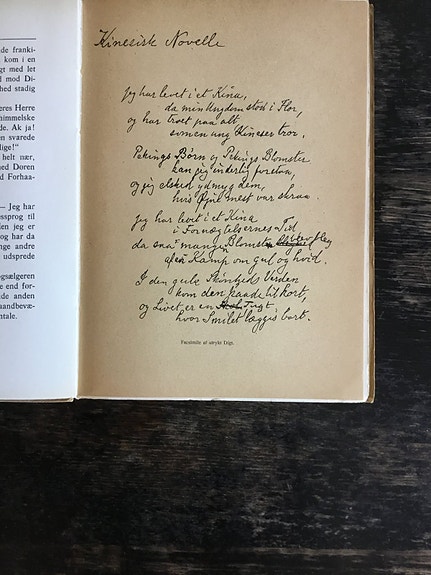 de franki-
kom i en
gt med let
d mod Di-
hed stadig
eres Herre
himmelske
de. Ak ja!
en svarede
lige!"
helt nær,
ed Doren
d Forhaa-
— Jeg har
essprog til
den jeg er
og har da
nge andre
udsprede
ogsælgeren
e end for-
de anden
aandbevæ-
ntale.
Kinesisk Novelle
Jeg har levet i et Kina,
da min Ungdom stod i Flor,
og har troet paa alt
som en ung Kineser tror.
Pekings Børn og Pekings Blomster
kan jeg inderlig forstaa,
og jeg elsked ydmyg dem,
hvis Øjne mest var skraa.
Jeg har levet i et Kina
i Fornægtelsernes Tid
da saa mangen Blomst blev Slag
i en Kamp om gul og hvid.
I den gule Skønheds Verden
kom den hvide til kort,
og Livet er en Ting,
hvor Smilet lægges bort.
Facsimile af utrykt Digt.